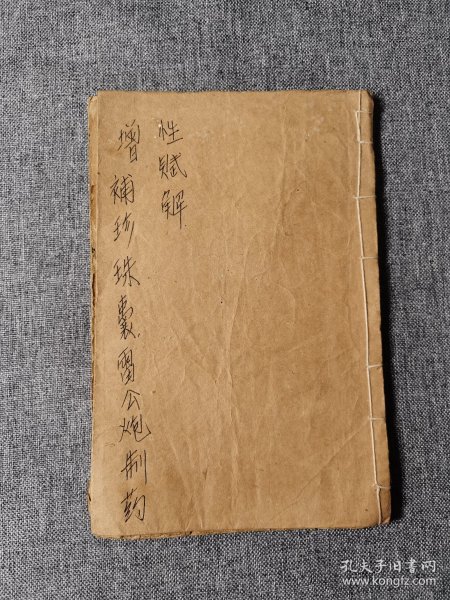 增補珍珠囊雷公炮制药
性賦解
孔夫子旧书网
www.kongfz.com